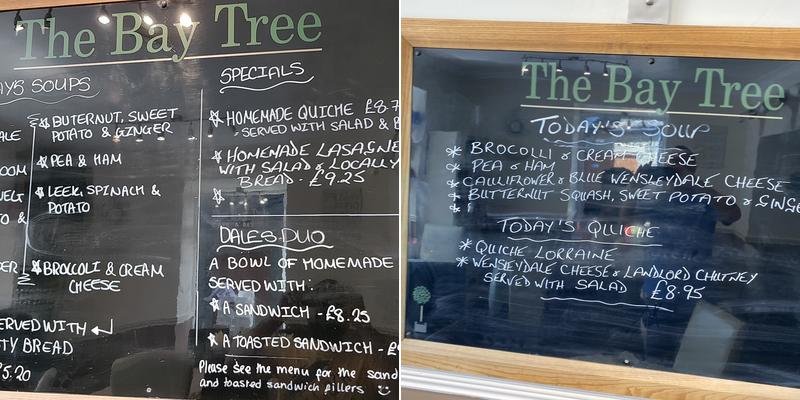 The Bay Tree
SOUPS
BUTERNUT, SWEET
POTATO & GINGER
PEA & HAM
LEEK, SPINACH &
POTATO
BROCOLLI & CREAM
CHEESE
WITH
BREAD
SPECIALS
HOMEMADE QUICHE
- SERVED WITH SALAD &
HOMEMADE LASAGNE
WITH SALAD & LOCALLY
BREAD - £9.25
DALES DUO
A BOWL OF HOMEMADE
SERVED WITH:
A SANDWICH - £8.25
A TOASTED SANDWICH -
Please see the menu for the
and toasted sandwich fillers
The Bay Tree
TODAY'S SOUP
* BROCOLLI & CREAM CHEESE
* PEA & HAM
* CAULIFLOWER & BLUE WENSLEYDALE CHEESE
* BUTTERNUT SQUASH, SWEET POTATO &
TODAY'S QUICHE
* QUICHE LORRAINE
* WENSLEYDALE CHEESE & LANDLORD CHUTNEY
SERVED WITH SALAD £8.95